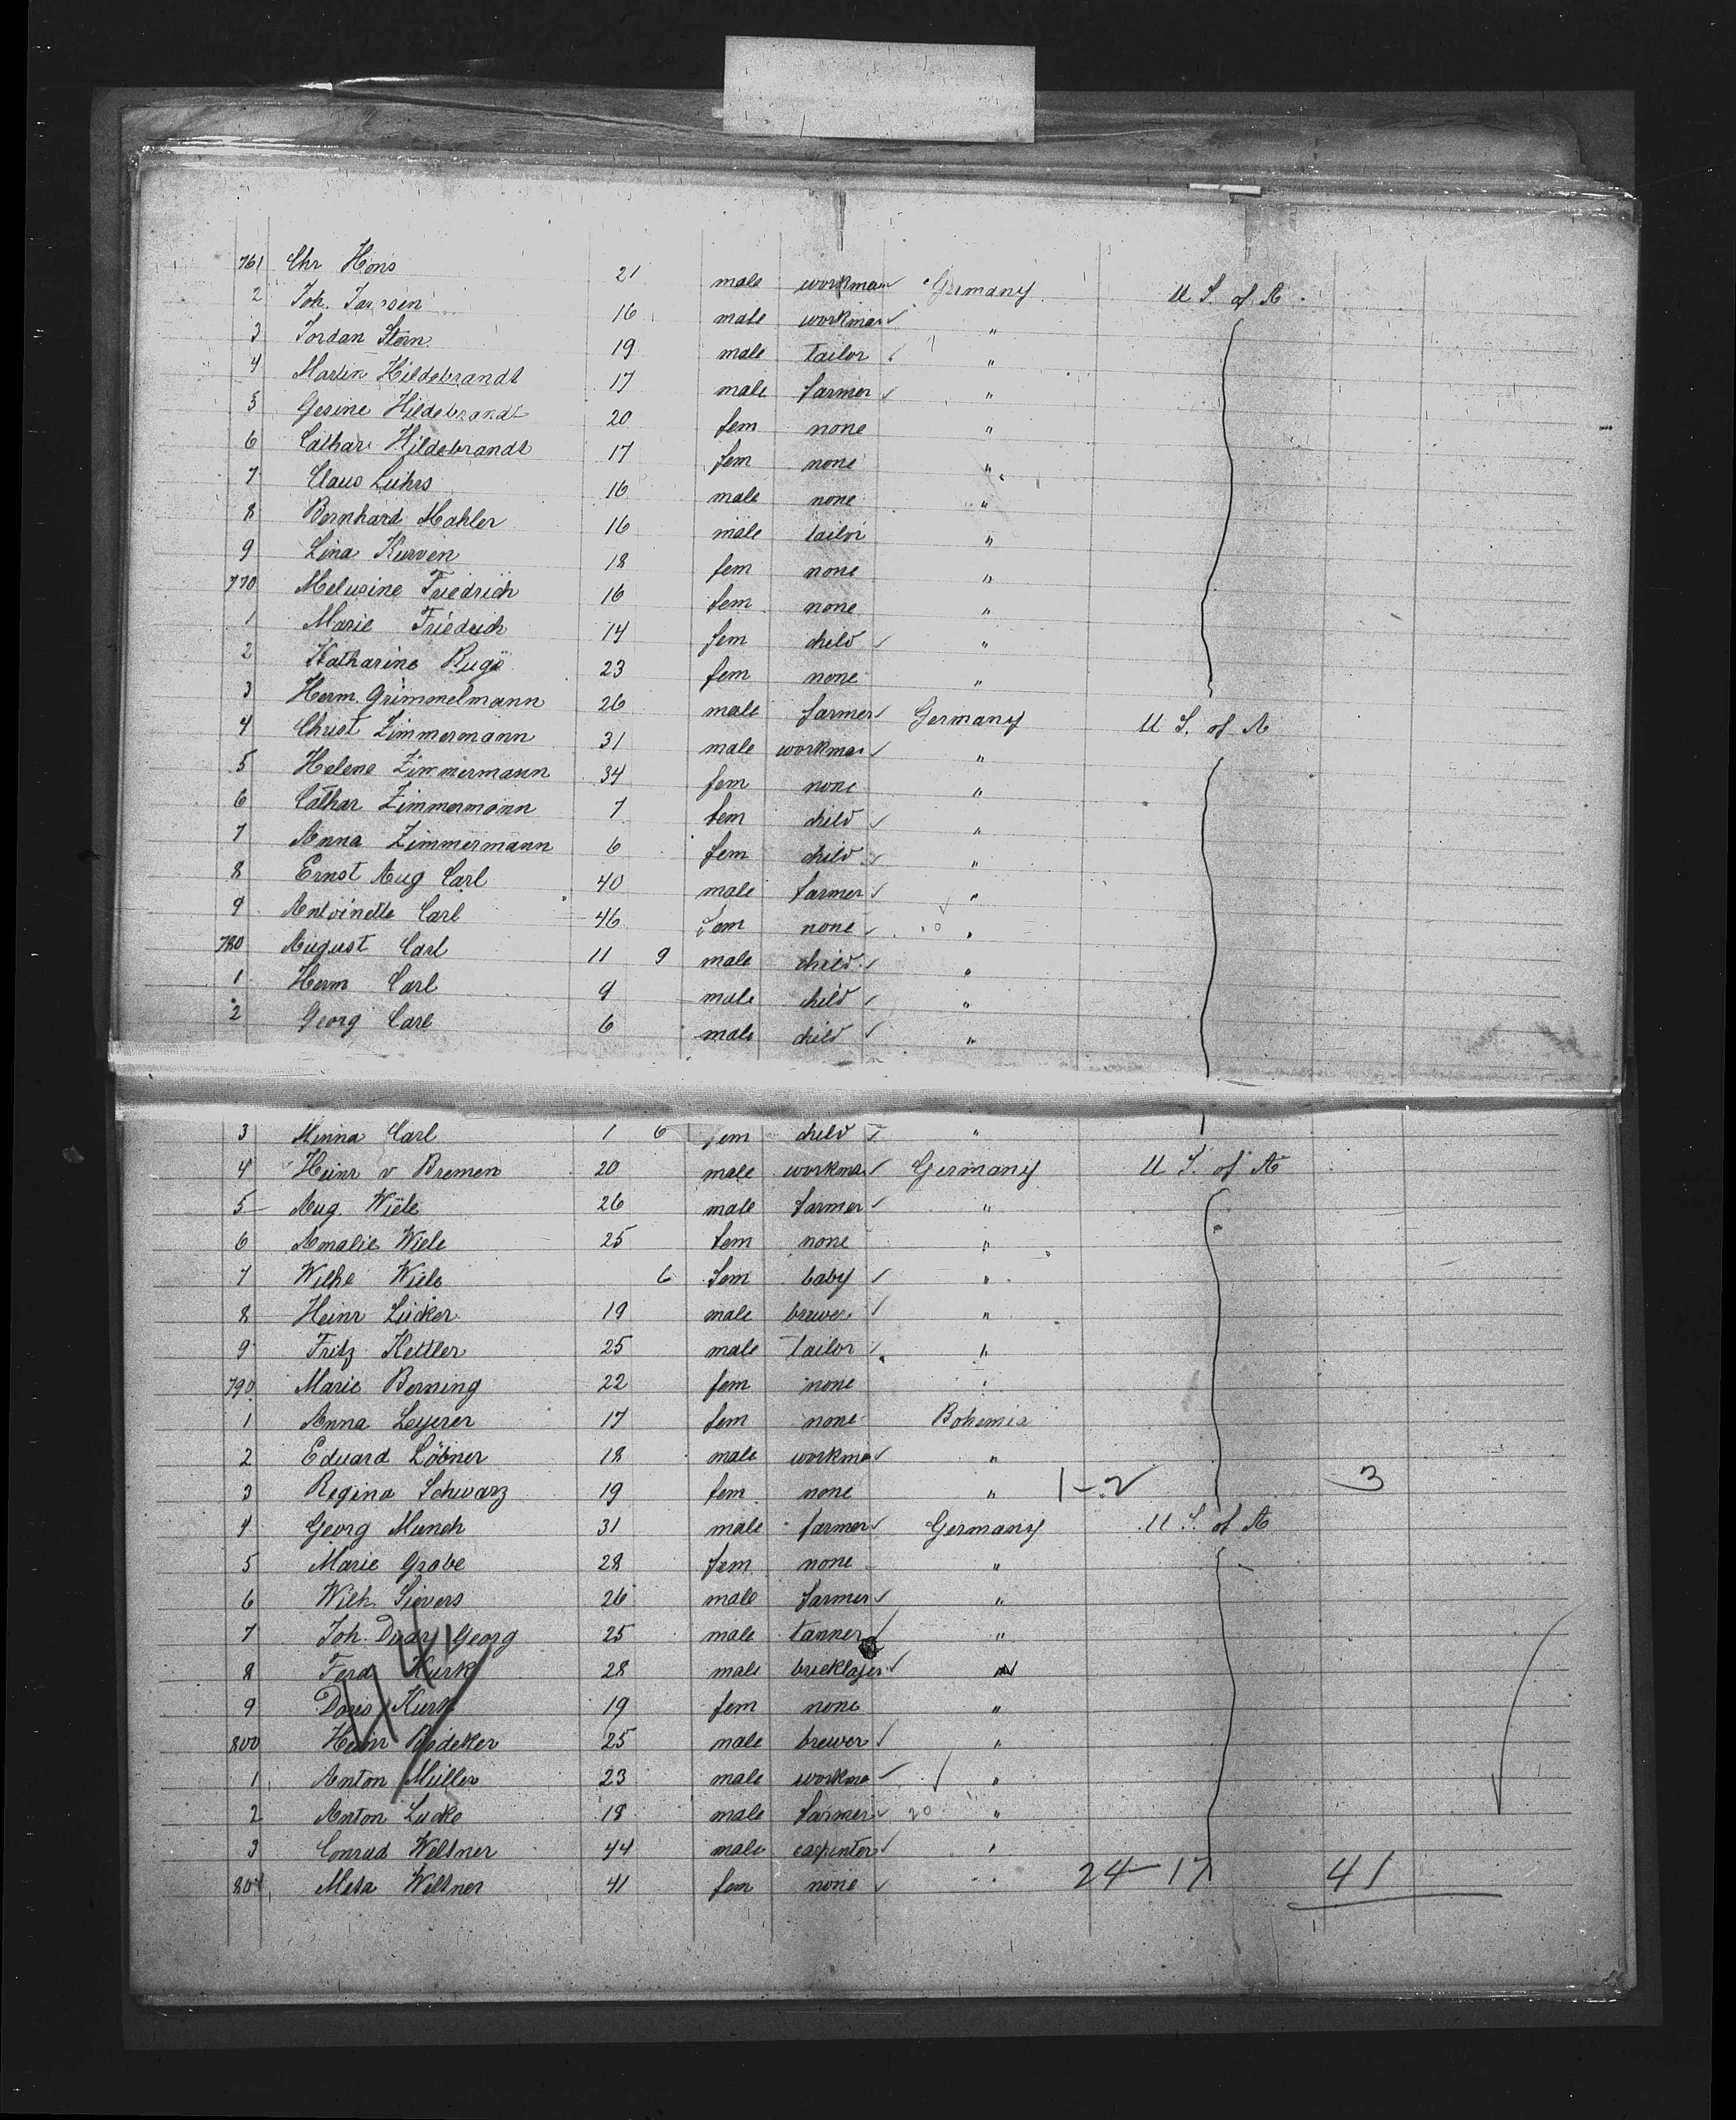 761 Chr Hons 21 male workman Germany U S. of A.
2 Joh. Janssen 16 male workman "
3 Jordan Stern 19 male tailor "
4 Martin Hildebrandt 17 male farmer "
5 Gesine Hildebrandt 20 fem none "
6 Cathar Hildebrandt 17 fem none "
7 Claus Lührs 16 male none "
8 Bernhard Mahler 16 male tailor "
9 Lina Kurven 18 fem none "
770 Melusine Friedrich 16 fem none "
1 Marie Friedrich 14 fem child "
2 Katharine Ruge 23 fem none "
3 Herm. Grimmelmann 26 male farmer Germany U S. of A
4 Christ Zimmermann 31 male workman "
5 Helene Zimmermann 34 fem none "
6 Cathar Zimmermann 7 fem child "
7 Anna Zimmermann 6 fem child "
8 Ernst Aug Carl 40 male farmer "
9 Antoinette Carl 46 fem none "
780 August Carl 11 9 male child "
1 Herm Carl 9 male child "
2 Georg Carl 6 male child "
3 Minna Carl 1 6 fem child "
4 Heinr v Bremen 20 male workma Germany U S. of A
5 Aug. Wiele 26 male farmer "
6 Amalie Wiele 25 fem none "
7 Wilhe Wiele 6 fem baby "
8 Heinr Lücker 19 male brewer "
9 Fritz Kettler 25 male tailor "
790 Marie Berning 22 fem none "
1 Anna Leyerer 17 fem none Bohemia
2 Eduard Löbner 18 male workma "
3 Regina Schwarz 19 fem none " 1-2 3
4 Georg Münch 31 male farmer Germany U S. of A
5 Marie Grabe 28 fem none "
6 Wilh. Sievers 26 male farmer "
7 Joh. Georg 25 male tanner "
8 Ferd Kurk 28 male bricklayer "
9 Doris Kurk 19 fem none "
800 Heinr Bödeker 25 male brewer "
1 Anton Müller 23 male workma "
2 Anton Lucke 18 male farmer 20 "
3 Conrad Weltner 44 male carpenter "
804 Meta Weltner 41 fem none " 24-17 41